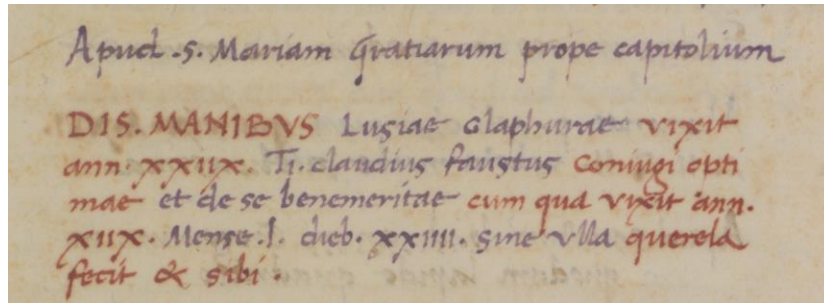 Apud .S. Mariam Gratiarum prope capitolium
DIS. MANIBVS Lusiae Glaphurae vixit
ann. XXIIX. Ti. claudius faustus coniugi opti
mae et de se benemeritae cum qua vixit ann.
XIIX. Mense .I. dieb. XXIIII. sine vlla querela
fecit & sibi .